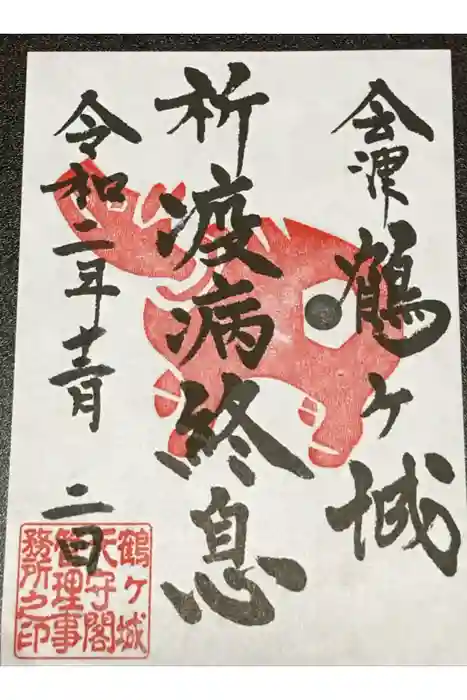 会津
鶴ヶ城
祈疫病終息
令和二年十二月 二日
鶴ヶ城
天守閣
管理事
務所之印